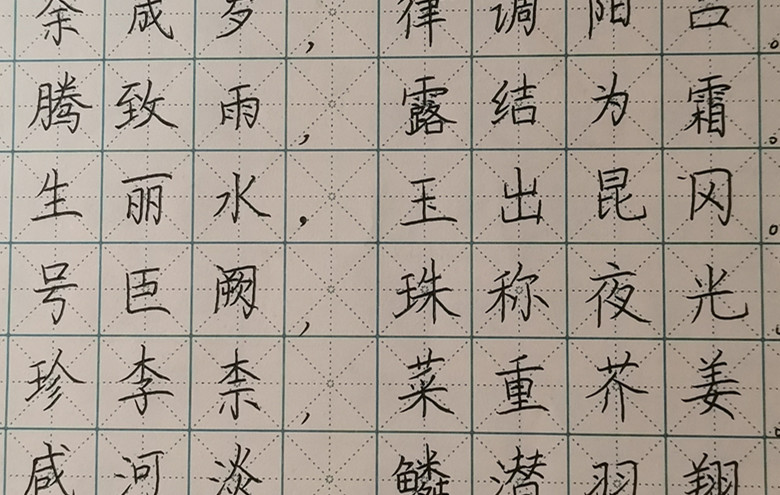 余成岁，律调阳吕。
腾致雨，露结为霜。
生丽水，玉出昆冈。
号巨阙，珠称夜光
珍李柰，菜重芥姜
咸河淡 鳞潜羽翔